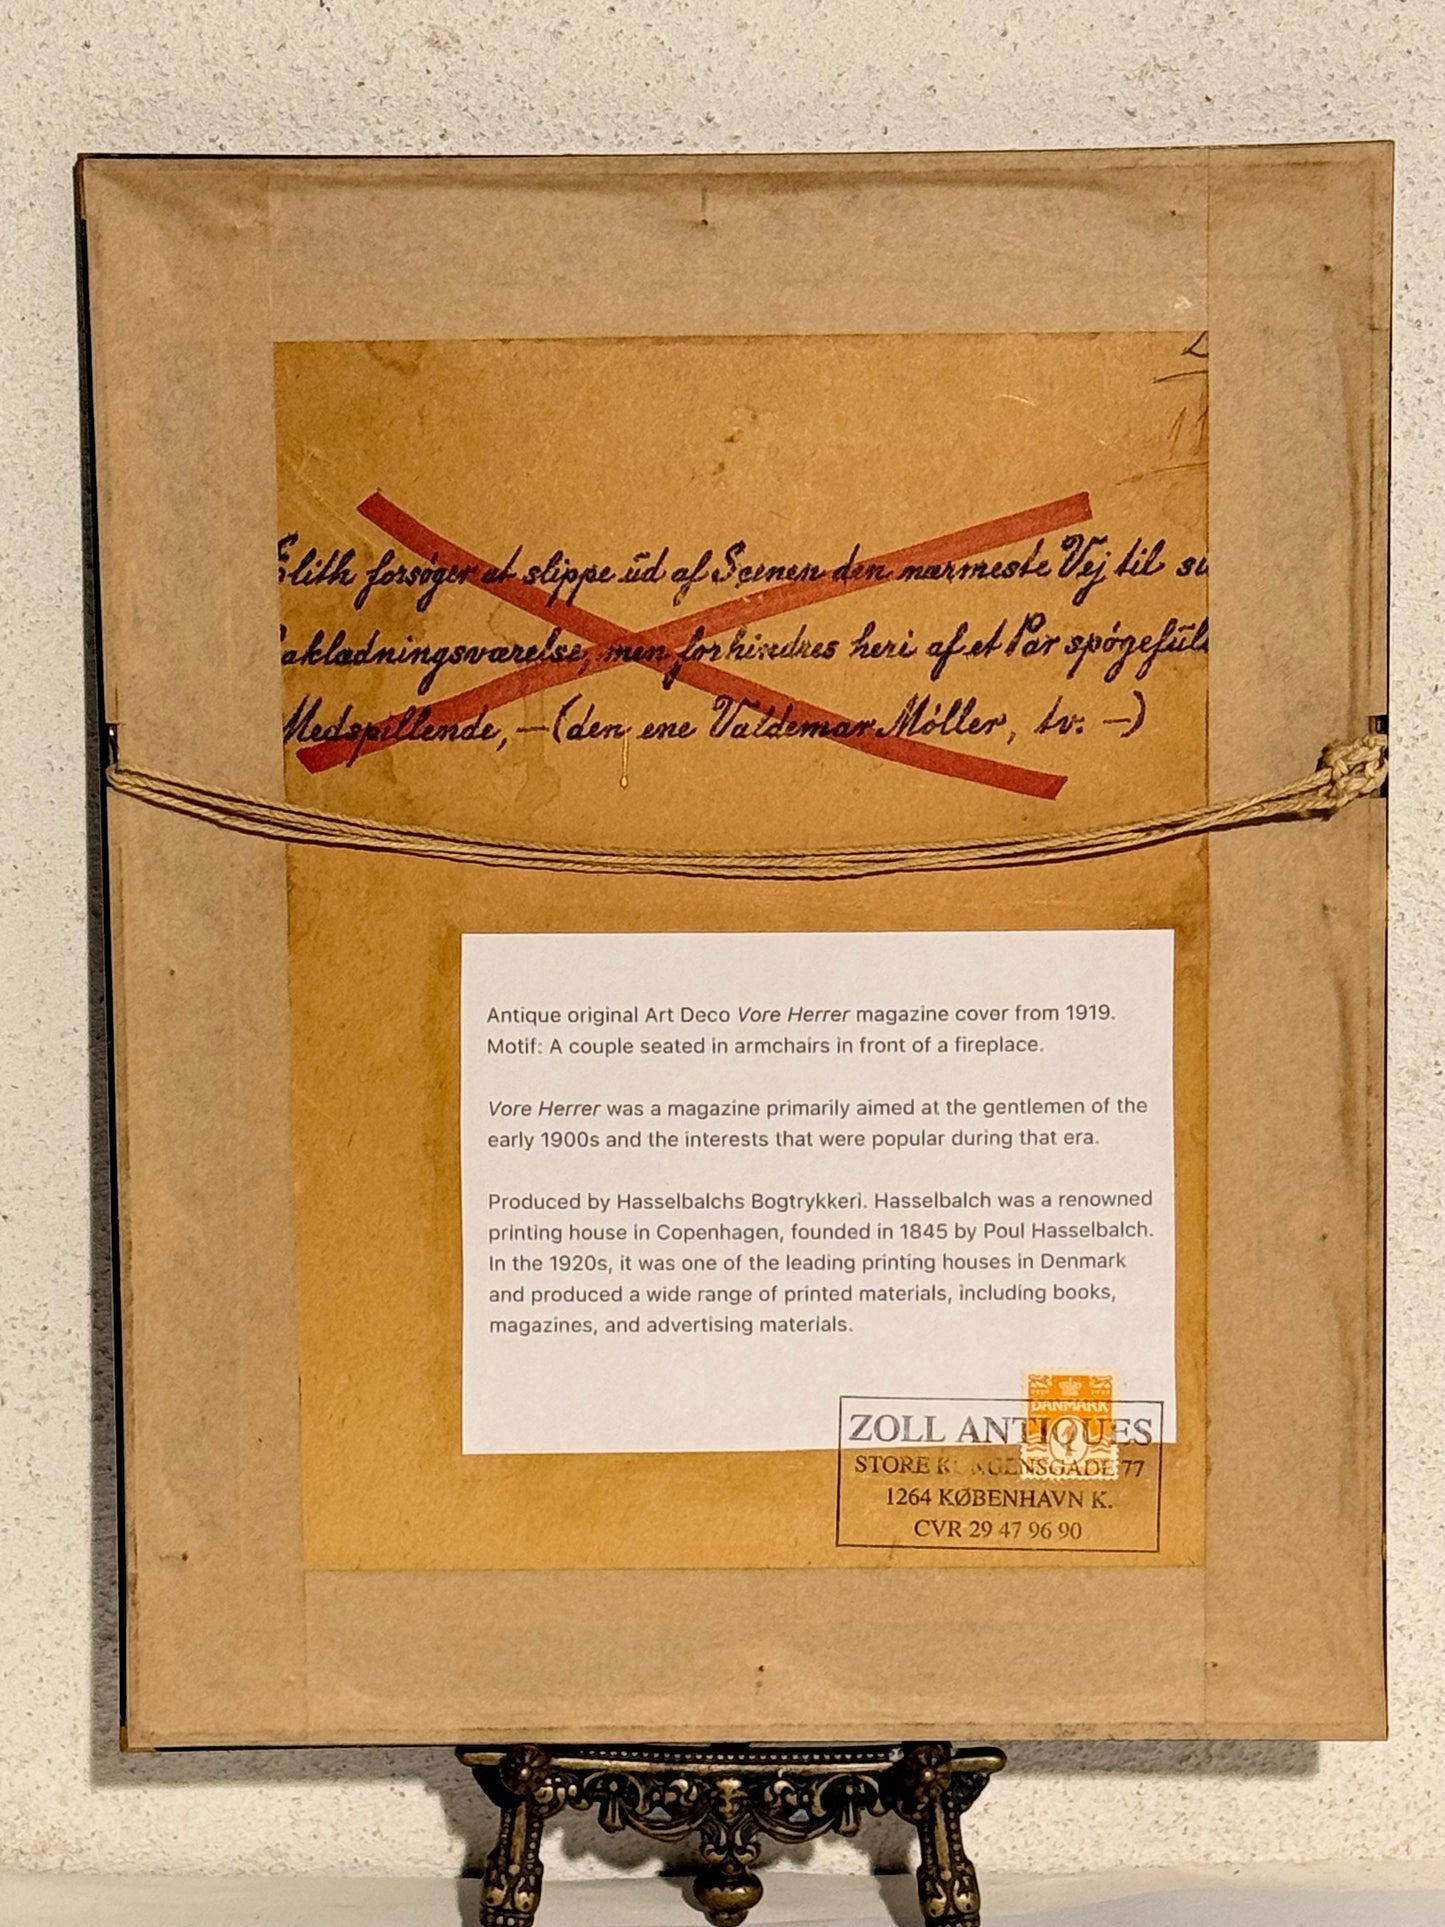 11
Elith forsøger at slippe ud af Scenen den nærmeste Vej til
akladningsværelse, men forhindres heri af et Par spøgefuld
Medspillende, — (den ene Valdemar Möller, tv. —)
Antique original Art Deco Vore Herrer magazine cover from 1919.
Motif: A couple seated in armchairs in front of a fireplace.
Vore Herrer was a magazine primarily aimed at the gentlemen of the
early 1900s and the interests that were popular during that era.
Produced by Hasselbalchs Bogtrykkeri. Hasselbalch was a renowned
printing house in Copenhagen, founded in 1845 by Poul Hasselbalch.
In the 1920s, it was one of the leading printing houses in Denmark
and produced a wide range of printed materials, including books,
magazines, and advertising materials.
DANMARK
ZOLL ANTIQUES
STORE KONGENSGADE 77
1264 KØBENHAVN K.
CVR 29 47 96 90